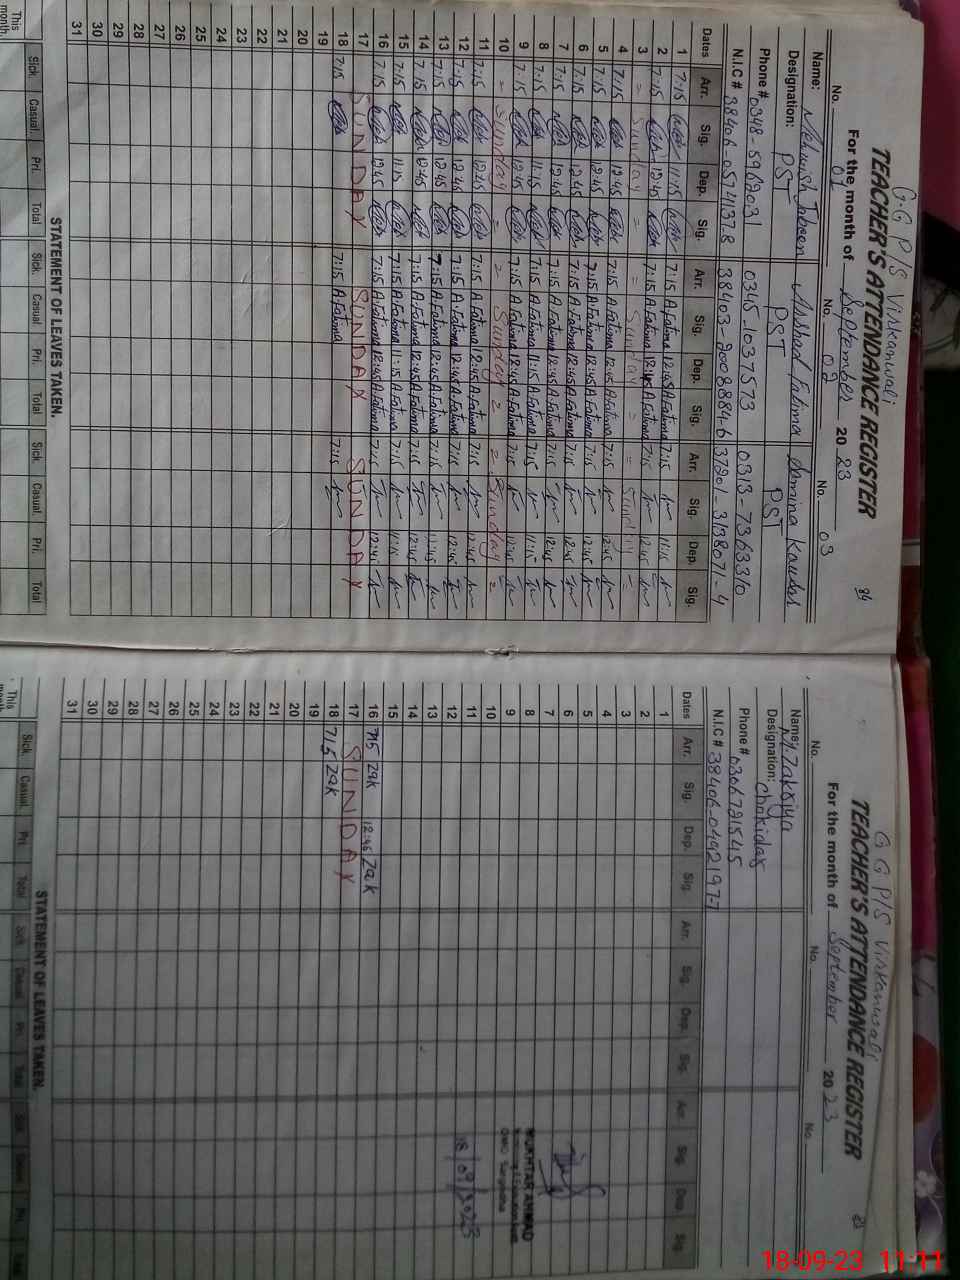 G.G P/S Virkanwali
TEACHER'S ATTENDANCE REGISTER
84
For the month of September 2023
No. 01 No. 02 No. 03
Name: Mehwish Jabeen Arshad Fatima Samina Kausar
Designation: PST PST PST
Phone # 0348-5962031 0345-1037573 0313-7363310
N.I.C # 38406-0574137-8 38403-2008884-6 37201-3138071-4
Dates Arr. Sig. Dep. Sig. Arr. Sig. Dep. Sig. Arr. Sig. Dep. Sig.
1 7:15 11:15 7:15 A.Fatima 12:45 A.Fatima 7:15 11:15
2 7:15 12:45 7:15 A.Fatima 12:45 A.Fatima 7:15 12:45
3 = Sunday = = Sunday = = Sunday =
4 7:15 12:45 7:15 A.Fatima 12:45 A.Fatima 7:15 12:45
5 7:15 12:45 7:15 A.Fatima 12:45 A.Fatima 7:15 12:45
6 7:15 12:45 7:15 A.Fatima 12:45 A.Fatima 7:15 12:45
7 7:15 12:45 7:15 A.Fatima 12:45 A.Fatima 7:15 12:45
8 7:15 11:15 7:15 A.Fatima 11:15 A.Fatima 7:15 11:15
9 7:15 12:45 7:15 A.Fatima 12:45 A.Fatima 7:15 12:45
10 = Sunday = = Sunday = = Sunday =
11 7:15 12:45 7:15 A.Fatima 12:45 A.Fatima 7:15 12:45
12 7:15 12:45 7:15 A.Fatima 12:45 A.Fatima 7:15 12:45
13 7:15 12:45 7:15 A.Fatima 12:45 A.Fatima 7:15 12:45
14 7:15 12:45 7:15 A.Fatima 12:45 A.Fatima 7:15 12:45
15 7:15 11:15 7:15 A.Fatima 11:15 A.Fatima 7:15 11:15
16 7:15 12:45 7:15 A.Fatima 12:45 A.Fatima 7:15 12:45
17 SUNDAY SUNDAY SUNDAY
18 7:15 7:15 A.Fatima 7:15
19
20
21
22
23
24
25
26
27
28
29
30
31
STATEMENT OF LEAVES TAKEN.
Sick. Casual. Pri. Total Sick. Casual. Pri. Total Sick. Casual. Pri. Total
This month.
G G P/S Virkanwali
TEACHER'S ATTENDANCE REGISTER
For the month of September 2023
No. No. No.
Name: M.Zakriya
Designation: Chokidar
Phone # 03067121545
N.I.C # 38406-0492197-7
Dates Arr. Sig. Dep. Sig. Arr. Sig. Dep. Sig. Arr. Sig. Dep. Sig.
1
2
3
4
5
6
7
8
9
10
11
12
13
14
15
16 715 Zak 12:45 Zak
17 SUNDAY
18 715 Zak
19
20
21
22
23
24
25
26
27
28
29
30
31
MUKHTAR AHMAD
18/09/2023
STATEMENT OF LEAVES TAKEN.
Sick. Casual. Pri. Total Sick. Casual. Pri. Total Sick. Casual. Pri. Total
This month.
18-09-23 11:11